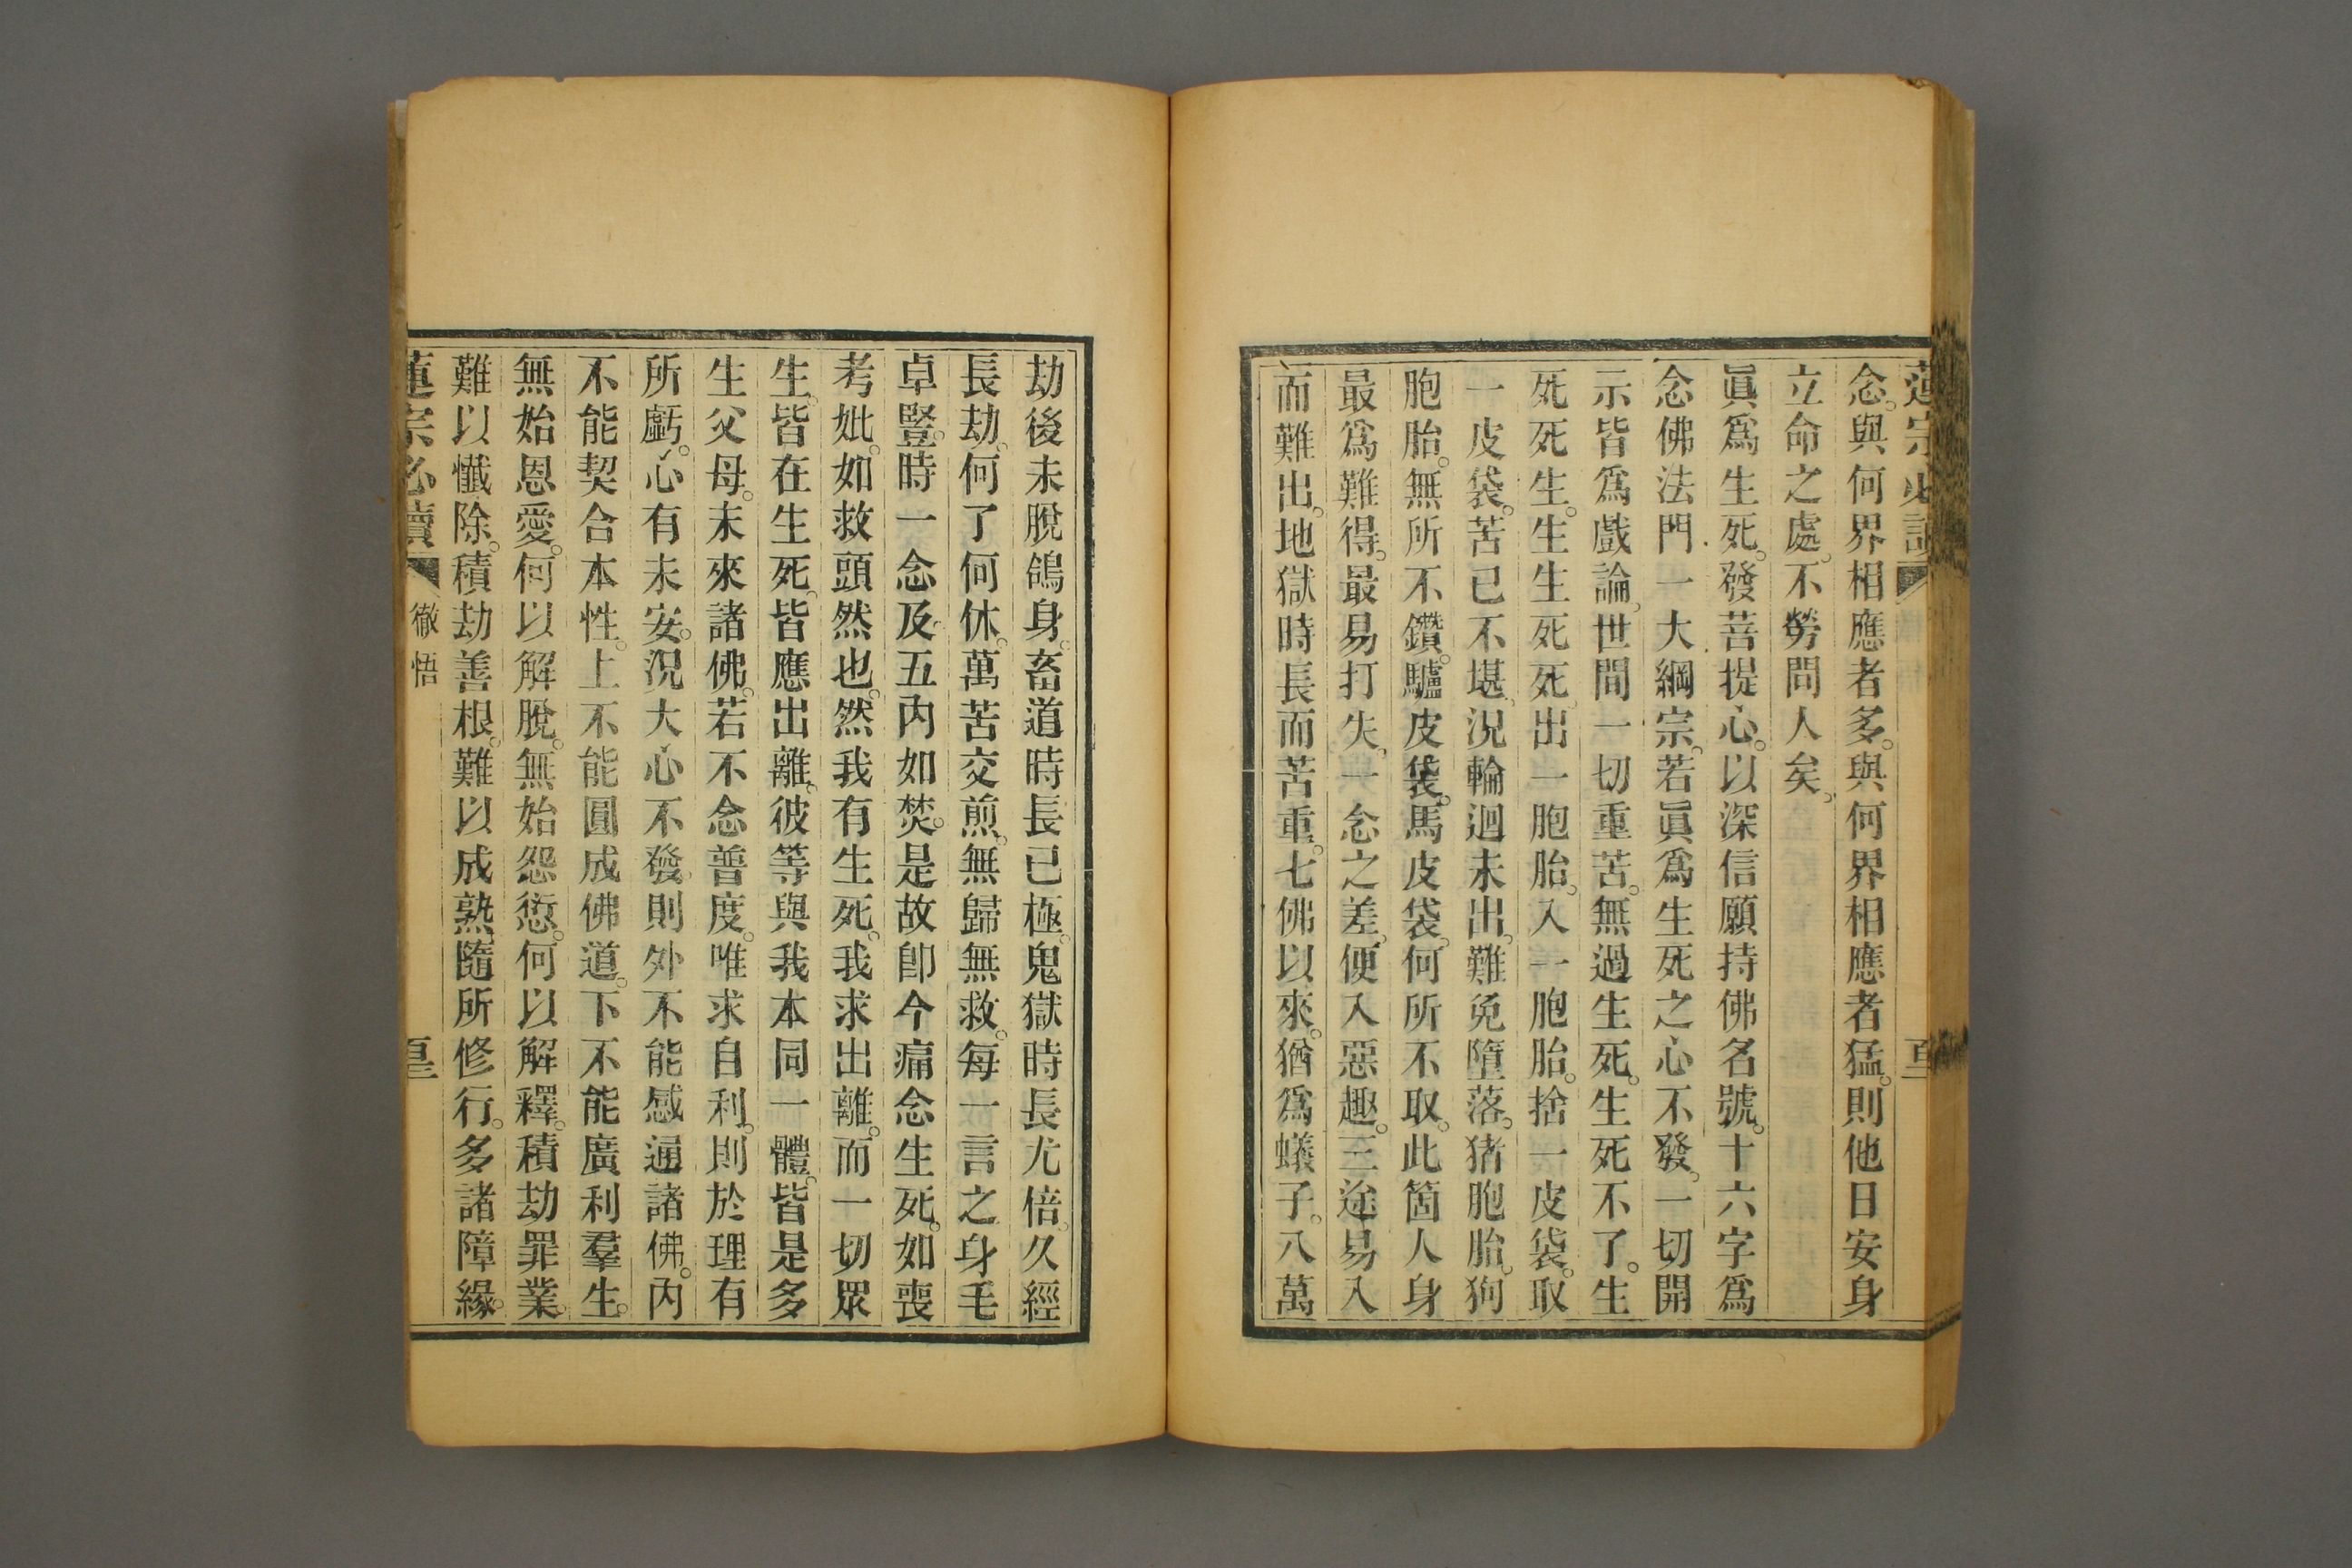 蓮宗必讀
念。與何界相應者多。與何界相應者猛。則他日安身
立命之處。不勞問人矣。
眞爲生死。發菩提心。以深信願持佛名號。十六字爲
念佛法門一大綱宗。若眞爲生死之心不發。一切開
示皆爲戲論。世間一切重苦。無過生死。生死不了。生
死死生。生生死死。出一胞胎。入一胞胎。捨一皮袋。取
一皮袋。苦已不堪。況輪迴未出。難免墮落。猪胞胎。狗
胞胎。無所不鑽。驢皮袋。馬皮袋。何所不取。此箇人身
最爲難得。最易打失。一念之差。便入惡趣。三途易入
而難出。地獄時長而苦重。七佛以來。猶爲蟻子。八萬
劫後未脫鴿身。畜道時長已極。鬼獄時長尤倍。久經
長劫。何了何休。萬苦交煎。無歸無救。每一言之身毛
卓豎。時一念及。五內如焚。是故卽今痛念生死。如喪
考妣。如救頭然也。然我有生死。我求出離。而一切眾
生。皆在生死。皆應出離。彼等與我本同一體。皆是多
生父母。未來諸佛。若不念普度。唯求自利。則於理有
所虧。心有未安。況大心不發。則外不能感通諸佛。內
不能契合本性。上不能圓成佛道。下不能廣利羣生。
無始恩愛。何以解脫。無始怨愆。何以解釋。積劫罪業。
難以懺除。積劫善根。難以成熟。隨所修行。多諸障緣。
蓮宗必讀 徹悟